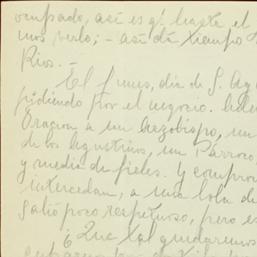 ocupado, así es q! hasta el
mos verlo; - así dá tiempo
Rios. -
El lunes, día de S. Ag
pidiendo por el negocio.
Oracion a un Arzobispo, un
de los Agustinos, un Párroco
y media de fieles. Y compro
intercedan, a una bola de
salió poco respetuoso, pero es
¿ Que tal quedaremos